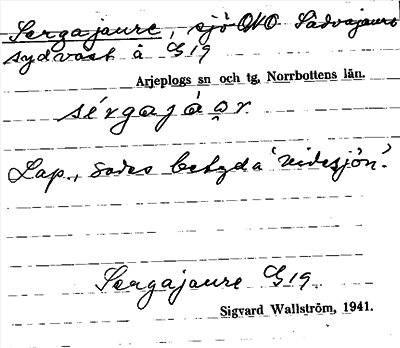 Sergajaure, sjö ONO Sädvajaure
sydväst å G 19
Arjeplogs sn och tg, Norrbottens län.
sérgajáǫr.
Lap., sades betyda 'videsjön'.
Sergajaure G 19.
Sigvard Wallström, 1941.